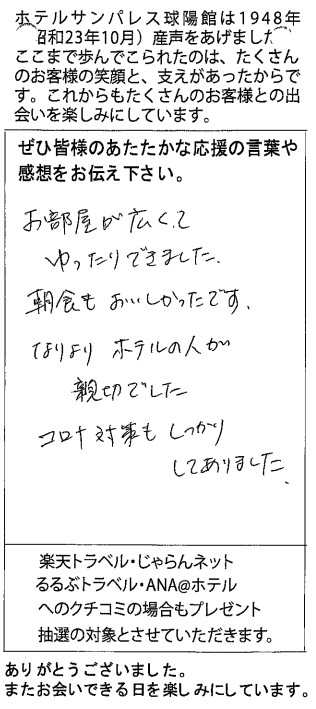 ホテルサンパレス球陽館は1948年
(昭和23年10月）産声をあげました
ここまで歩んでこられたのは、たくさん
のお客様の笑顔と、支えがあったからで
す。これからもたくさんのお客様との出
会いを楽しみにしています。
ぜひ皆様のあたたかな応援の言葉や
感想をお伝え下さい。
お部屋が広くて
ゆったりできました。
朝食もおいしかったです。
なりより ホテルの人が
親切でした
コロナ対策も しっかり
してありました。
楽天トラベル・じゃらんネット
るるぶトラベル・ANA@ホテル
へのクチコミの場合もプレゼント
抽選の対象とさせていただきます。
ありがとうございました。
またお会いできる日を楽しみにしています。